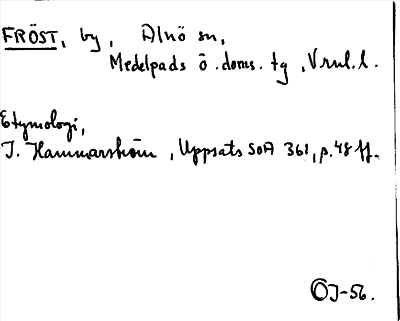 FRÖST, by, Alnö sn,
Medelpads ö. doms. tg, V.nrl. l.
Etymologi,
I. Hammarström, Uppsats SOA 361, p. 48 ff.
ÖJ-56.